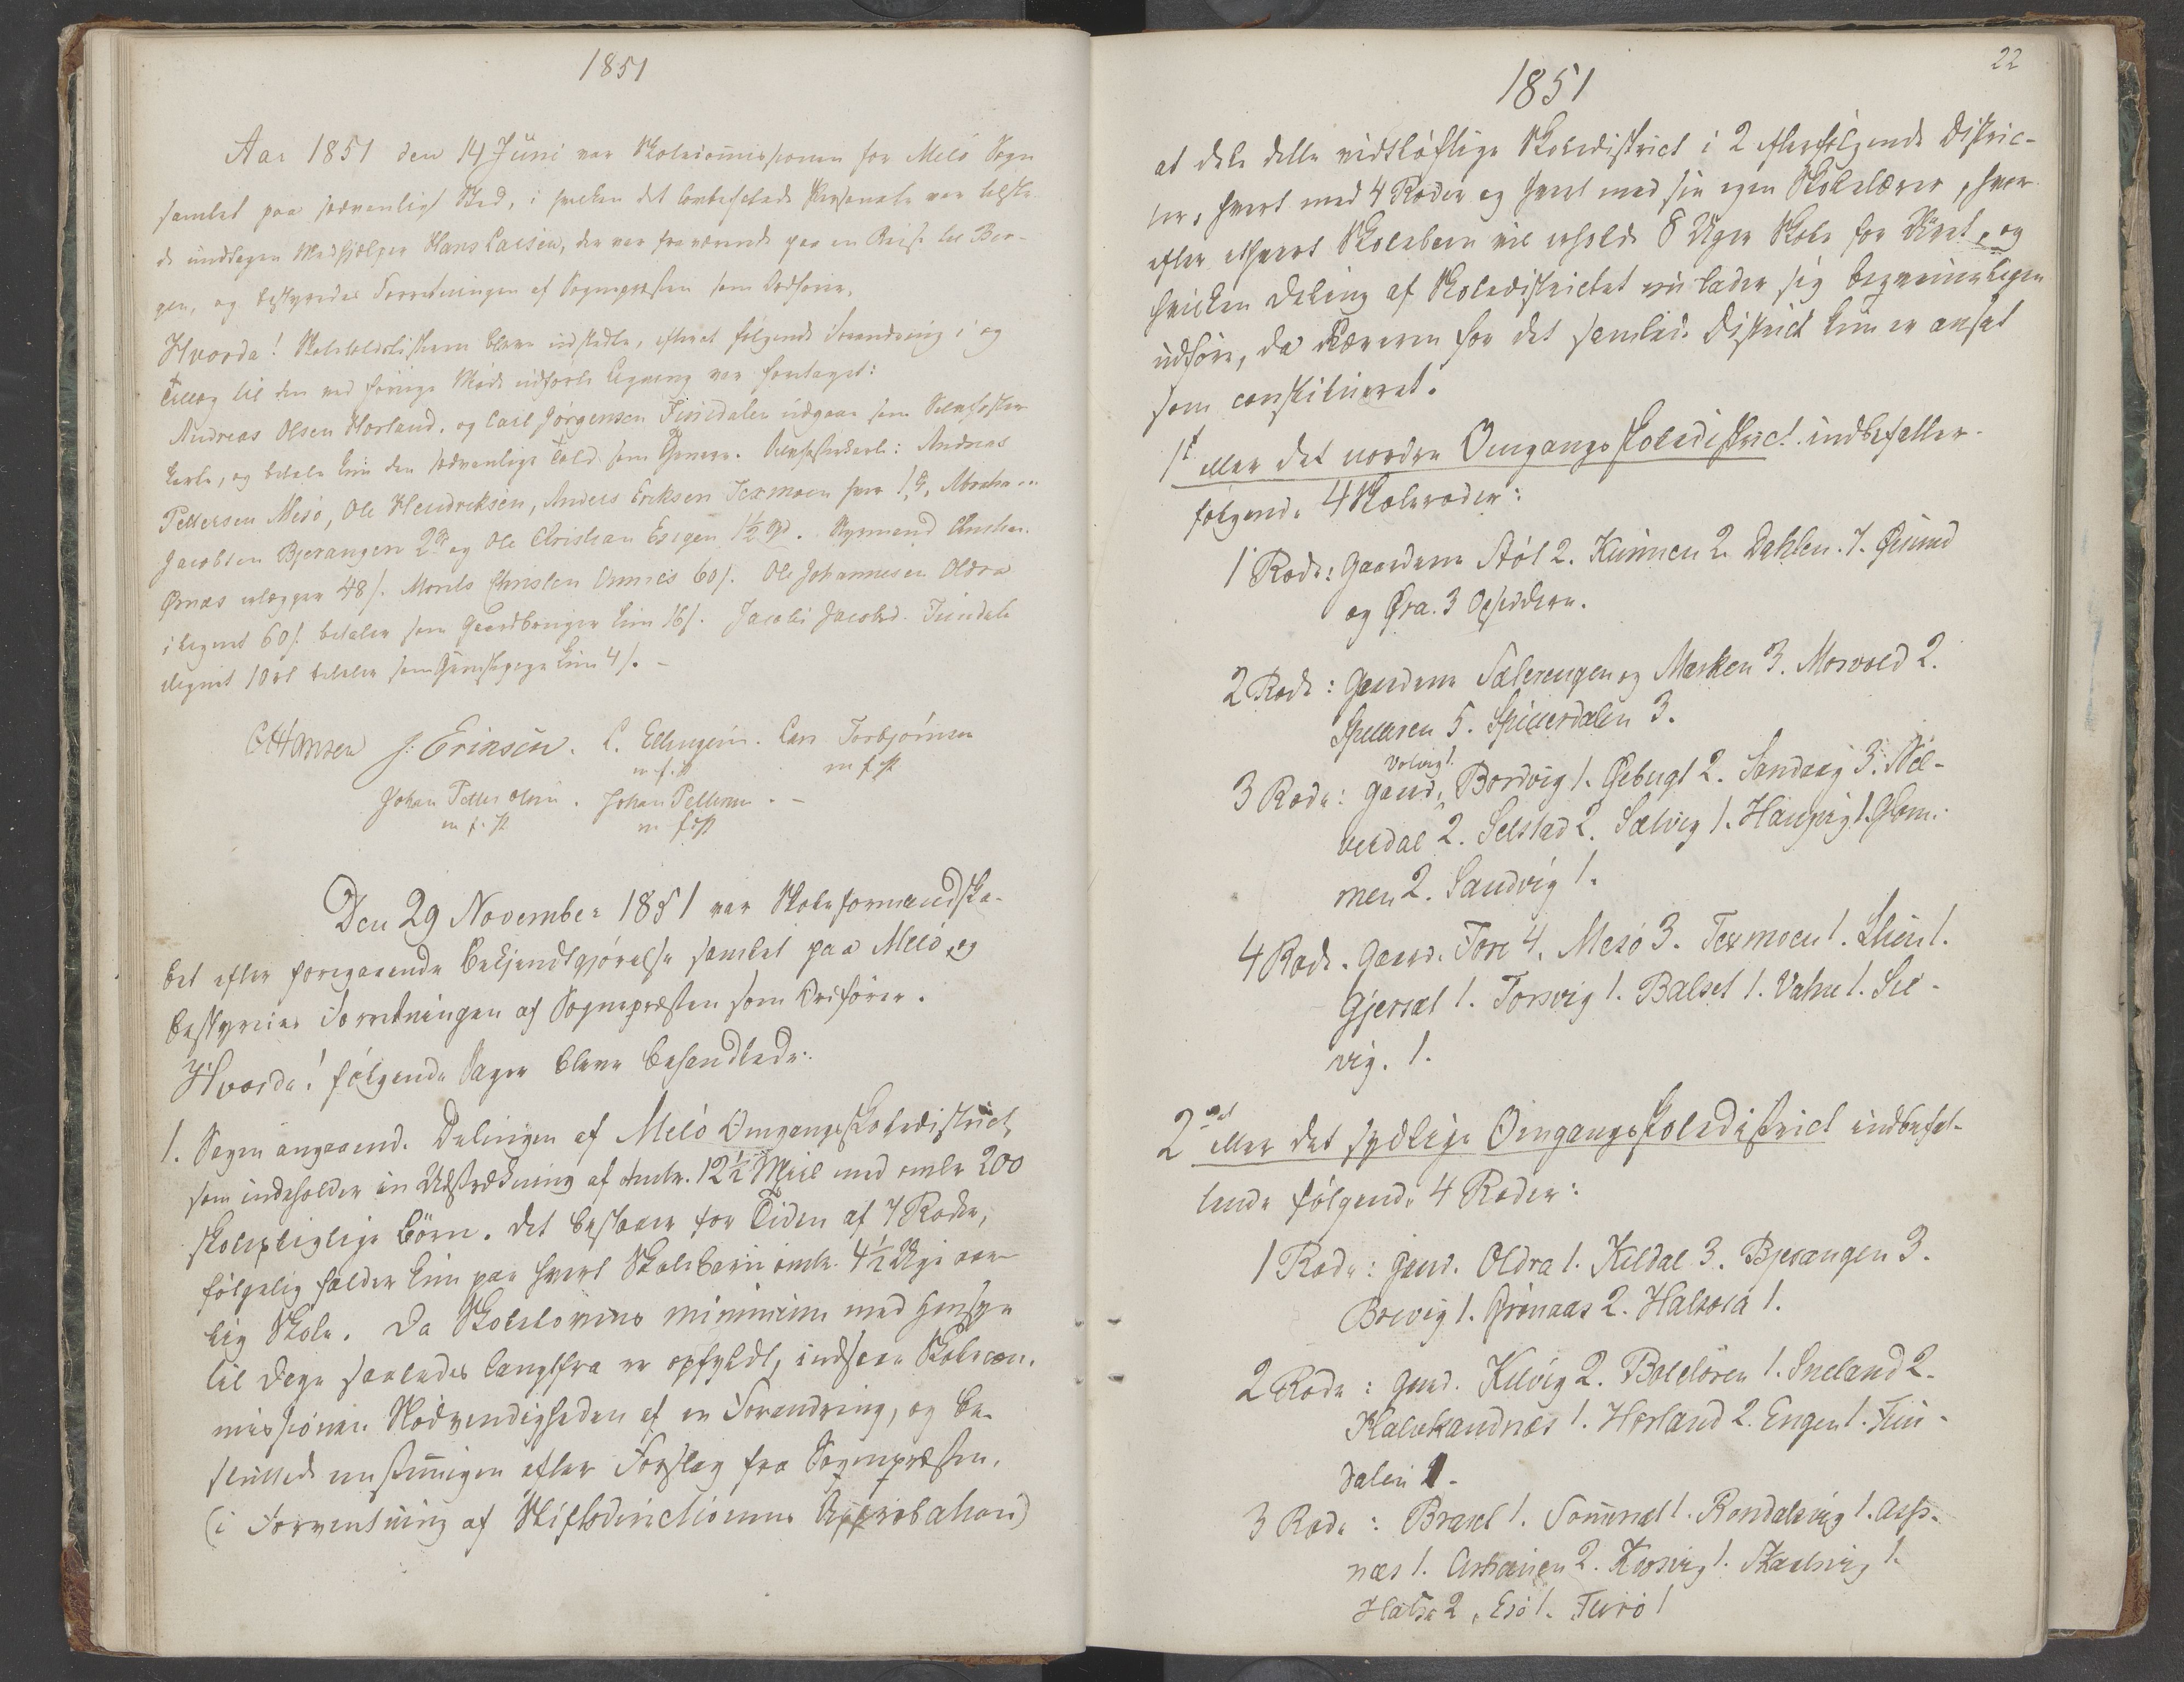 1851
Aar 1851 den 14 Juni var Skolecommissionen for Melö Sogn
samlet paa sædvanligt Sted, i hvilken det lovbefalede Personale var tilste-
de undtagen Medhjælper Hans Larsen, der var fraværende paa en Reise til Ber-
gen, og bestyredes Forretningen af Sognepræsten som Ordfører.
Hvorda! Skoletoldlisterne bleve indstedte, efterat følgende Forandring i og
Tillæg til den ved forrige Møde udførte Ligning var foretaget:
Andreas Olsen Horland, og Carl Jørgensen Finsdalen udgaar som
karle, og betale kun den sædvanlige Told som Tjenere. Andreas
Pettersen Mesö, Ole Hendriksen, Anders Eriksen Texmoen hver 1
Jacobsen Bjerangen 2 og Ole Christian Engen 1½
Ørnæs erlægger 48 s. Morits Christen 60 s. Ole Johannesen Oldra
ilignet 60 s. betaler som Gaardbruger kun 16 s. Jacob Jacobs. Fiindal
ilignet betaler som kun 4 s. -
C Hansen J: Eriksen. C. Ellingsen. Lars Torbjørnsen
m. f. P. m f P
Johan Petter Olsen. Johan Pettersen. -
m. f. P m. f. P
Den 29 November 1851 var Skoleformandska-
bet efter foregaaende Bekjendtgjørelse samlet paa Melö og
bestyredes Forretningen af Sognepræsten som Ordfører.
Hvorda! følgende Sager bleve behandlede:
1. Sagen angaaende Delingen af Melö Omgangsskoledistrict,
som indeholder en Udstrækning af omtr. 12½ Miil med omtr 200
skolepligtige Børn. Det bestaaer for Tiden af 7 Roder,
følgelig falder kun paa hvert Skolebarn omtr. 4½ Uge aar-
lig Skole. Da Skolelovens minimum med Hensyn
til Dage saaledes langtfra er opfyldt, indsaae Skolecom-
missionen Nødvendigheden af en Forandring, og be-
sluttede enstemmigen efter Forslag fra Sognepræsten,
(i Forventning af Stiftsdirectionens Approbation)
22
1851
at dele dette vidtløftige Skoledistrict i 2 efterfølgende Distric-
ter, hvert med 4 Roder og hvert med sin egen Skolelærer, hvor-
efter ethvert Skolebarn vil erholde 8 Uger Skole for Aaret, og
hvilken Deling af Skoledistrictet nu lader sig beqvemmeligen
udføre, da Læreren for det samlede District kun er ansat
som constitueret.
1st eller det nordre Omgangsskoledistrict indbefatter
følgende 4 Skoleroder:
1 Rode: Gaardene Støt 2. Kunnen 2. Dahlen. 7. Øsund
og Øra. 3 Opsiddere.
2 Rode: Gaardene Sæterengen og Marken 3. Morvold 2.
Spilleren 5. Spilderdalen 3.
Valvig 1.
3 Rode: Gaard. Bordvig 1. Gebugt 2. Sandaag 3. Nel-
verdal 2. Selstad 2. Sælvig 1. Haugvig 1. Glom-
men 2. Sandvig 1.
4 Rode. Gaard. Fore 4. Mesö 3. Texmoen 1. Lien 1.
Gjersæt 1. Torsvig 1. Balset 1. Vatne 1. Sel-
vig. 1.
2det eller det sydlige Omgangsskoledistrict indbefat-
tende følgende 4 Roder:
1 Rode: Gaard. Oldra 1. Kildal 3. Bjerangen 3.
Brevig 1. Grønaas 2. Halsaa 1.
2 Rode: Gaard. Kilvig 2. Boldören 1. Sneland 2.
Kalvhandnæs 1. Horland 2. Engen 1. Fin-
dalen 1.
3 Rode: Braset 1. Sommset 1. Rondalsvig 1. Asp-
næs 1. Arhaugen 2. Korsvig 1. Skaalsvig 1.
Halsa 2. Esö 1. Furö 1